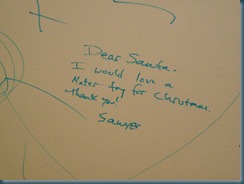 Dear Santa-
I would love a
Mater toy for Christmas.
thank you!
Sawyer